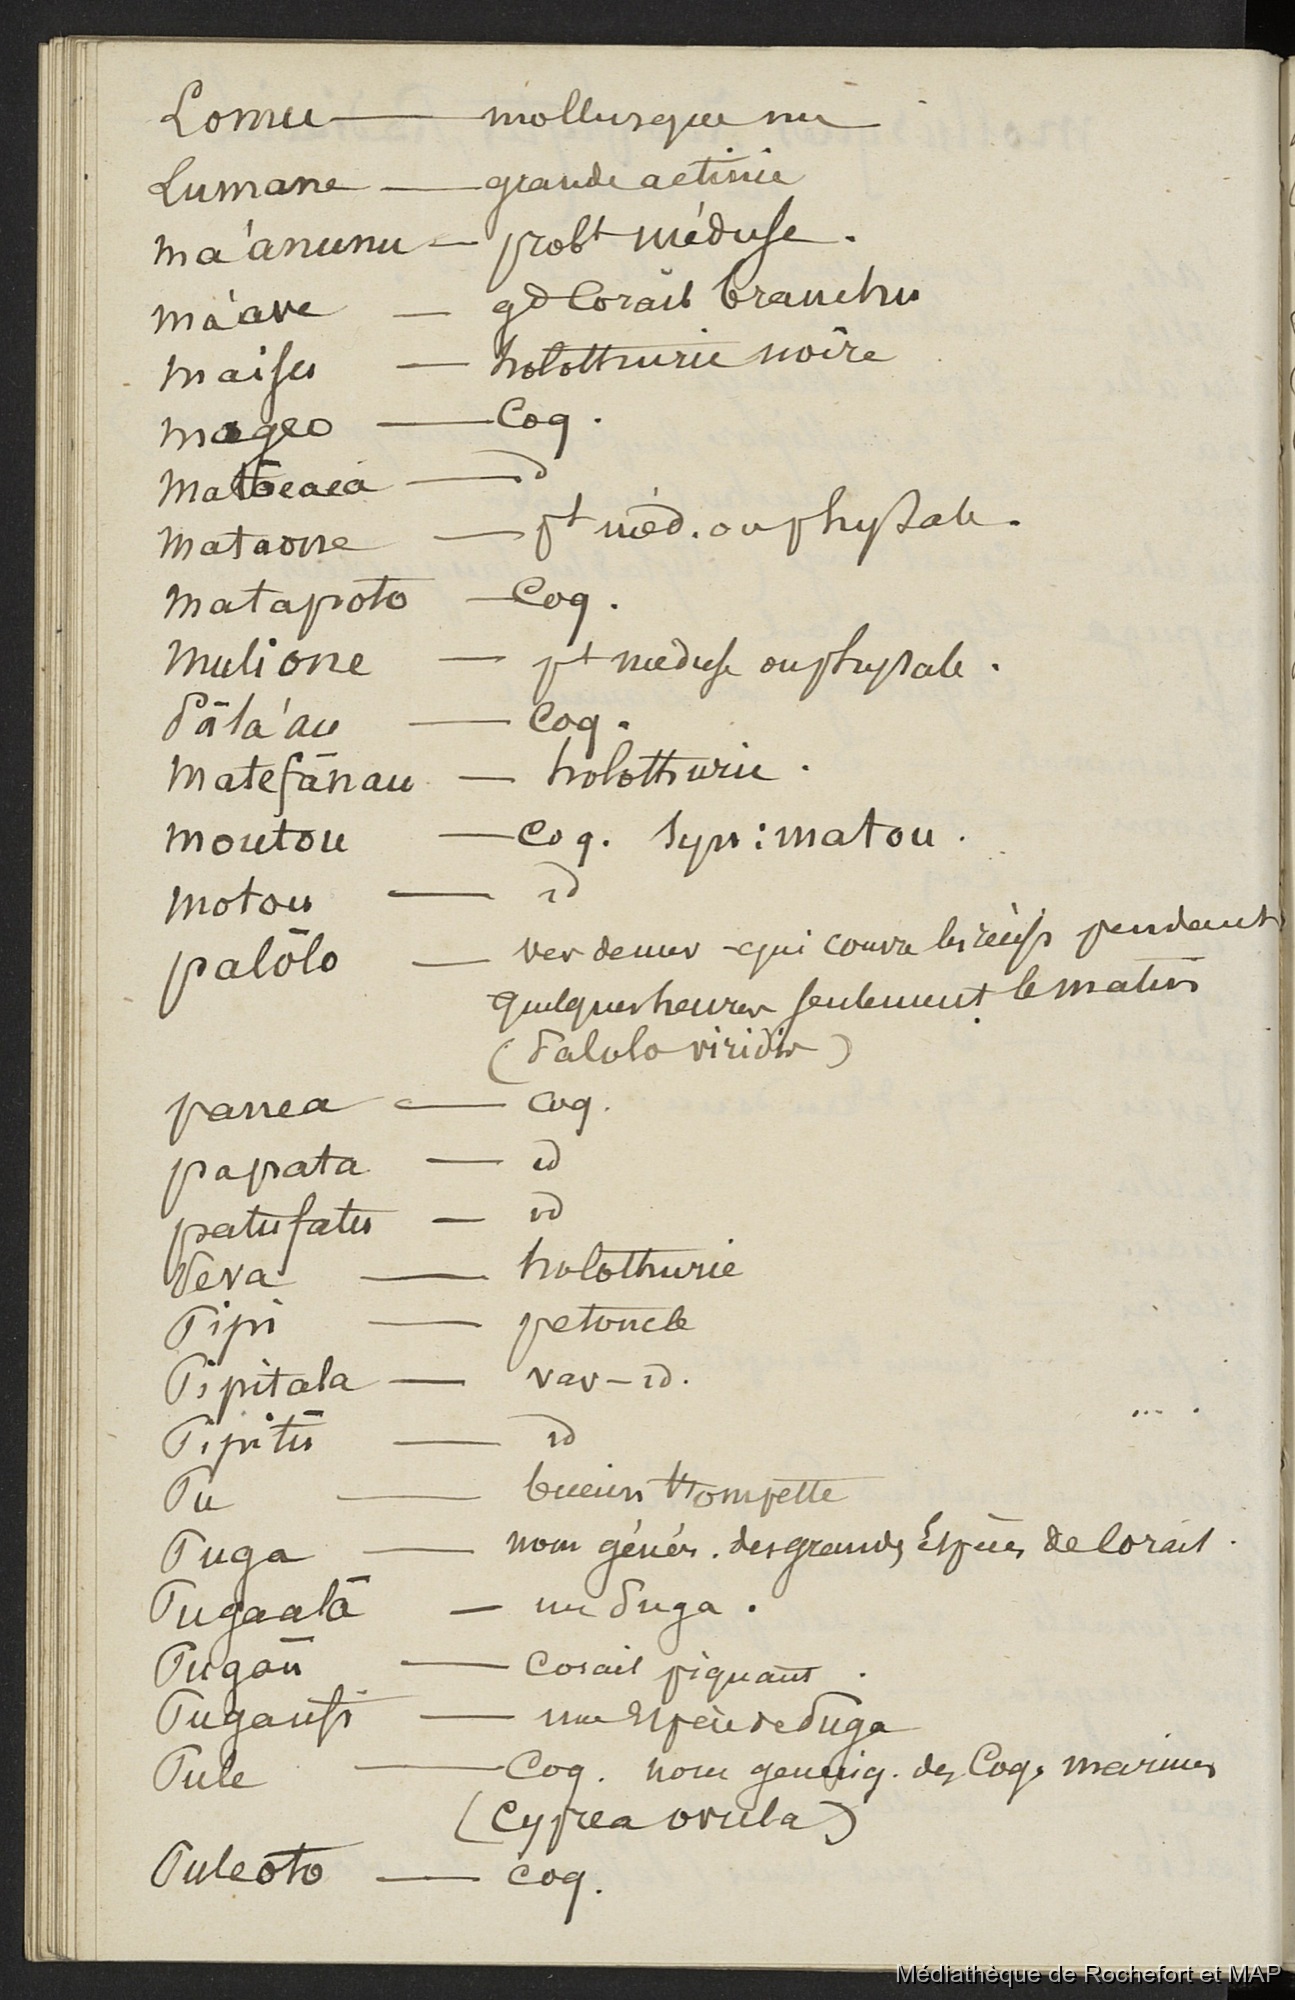 Lomu — mollusque nu
Lumane — grande actinie
ma'anunu — probt méduse.
ma'ave — gd Corail branchu
maisu — holothurie noire
mageo — Coq.
Matāeaea — id
mataone — pt méd. ou physale.
matapoto — Coq.
Muli one — pt méduse ou physale.
Pāla'au — Coq.
Matefānau — holothurie.
moutou — Coq. Syn: matou.
motou — id
palōlo — ver de mer qui couvre les récifs pendant
quelques heures seulement le matin
(Palolo viridis)
panea — coq.
papata — id
patufatu — id
Peva — holothurie
Pipi — petoncle
Pipitala — var - id.
Pipitū — id
Pu — buccin trompette
Puga — nom génér. des grandes Espèces de Corail.
Pugaalā — un Puga.
Pugaū — Corail piquant.
Pugausi — une Espèce de Puga
Pule — Coq. nom generiq. des Coqs marines
(Cyprea ovula)
Puleoto — coq.
Médiathèque de Rochefort et MAP